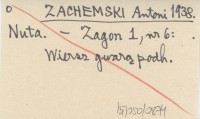 o ZACHEMSKI Antoni 1938.
Nuta. – Zagon 1, nr 6:
Wiersz gwarą podh.